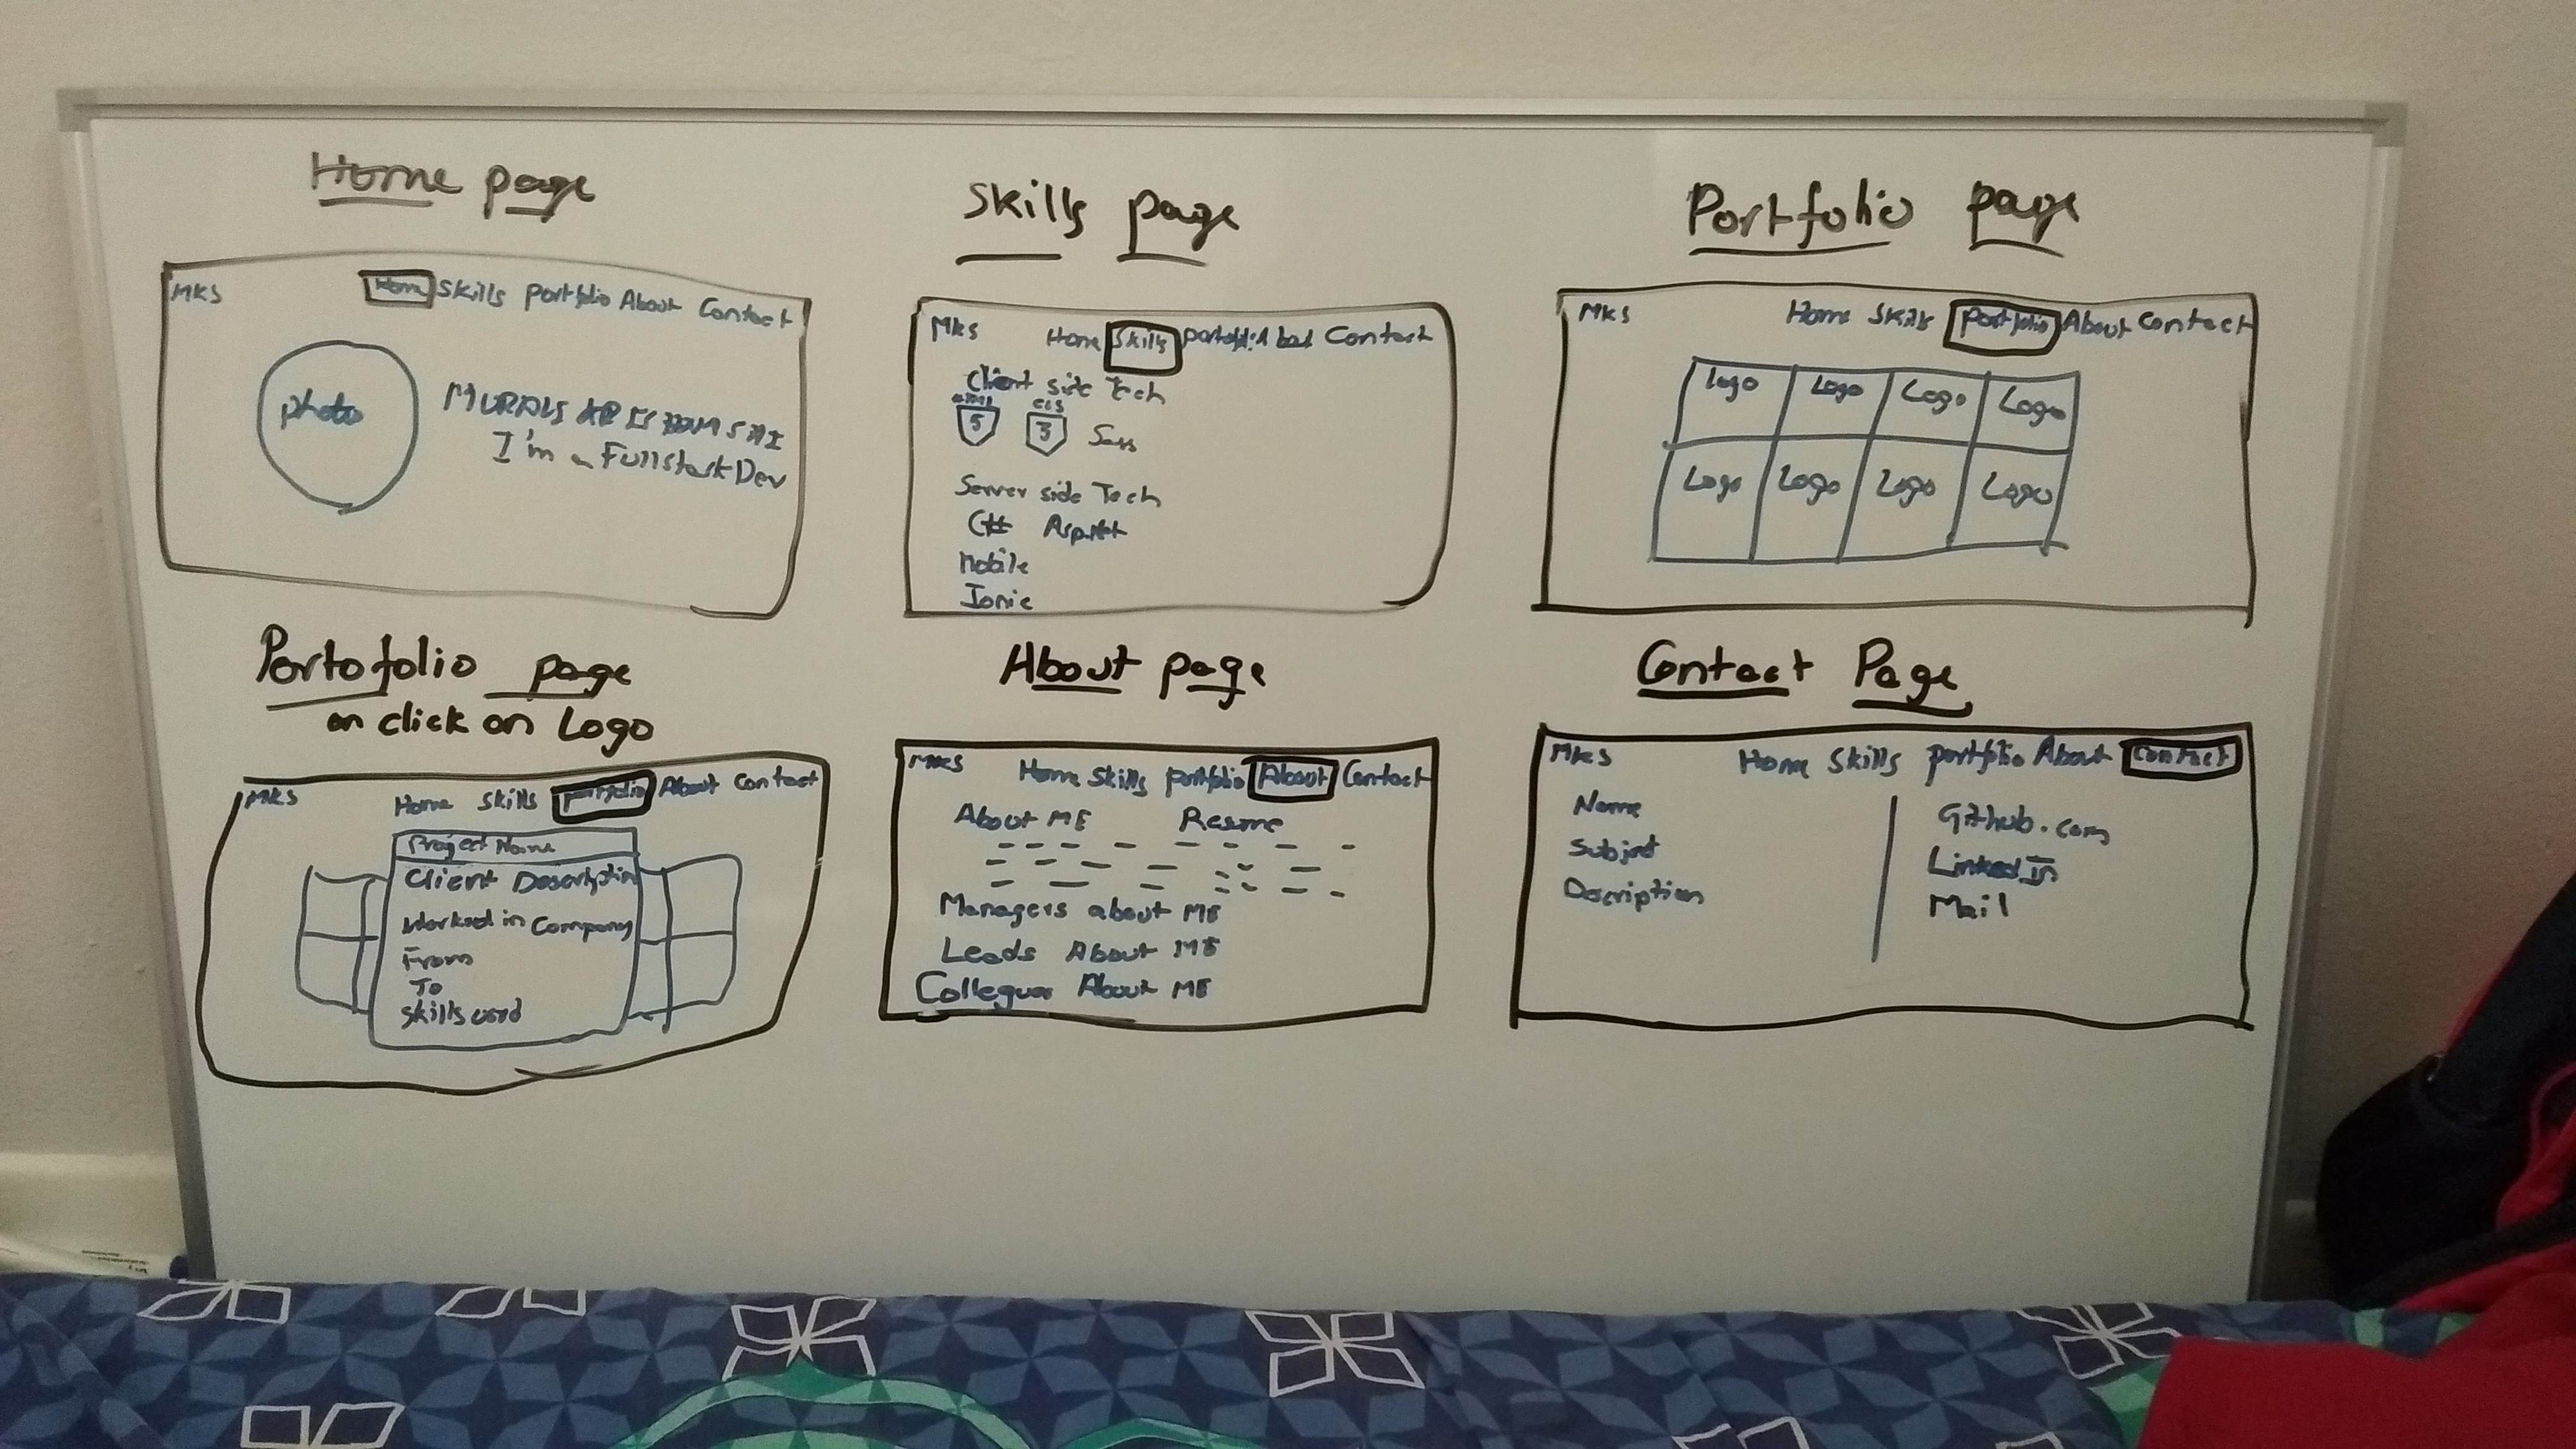 Home page
MKS Home Skills portfolio About Contact
photo
I'm a Fullstack Dev
Skills page
MKS Home Skills Contact
Client side Tech
HTML CSS
5 3 Sass
Server side Tech
C# Asp.Net
Mobile
Ionic
Portfolio page
MKS Home Skills portfolio About Contact
Logo Logo Logo Logo
Logo Logo Logo Logo
Portofolio page
on click on Logo
MKS Home Skills portfolio About Contact
Project Name
Client Description
Worked in Company
From
To
Skills used
About page
MKS Home Skills portfolio About Contact
About ME Resume
Managers about ME
Leads About ME
About ME
Contact Page
MKS Home Skills portfolio About Contact
Name
Subject
Description
Github.com
LinkedIn
Mail